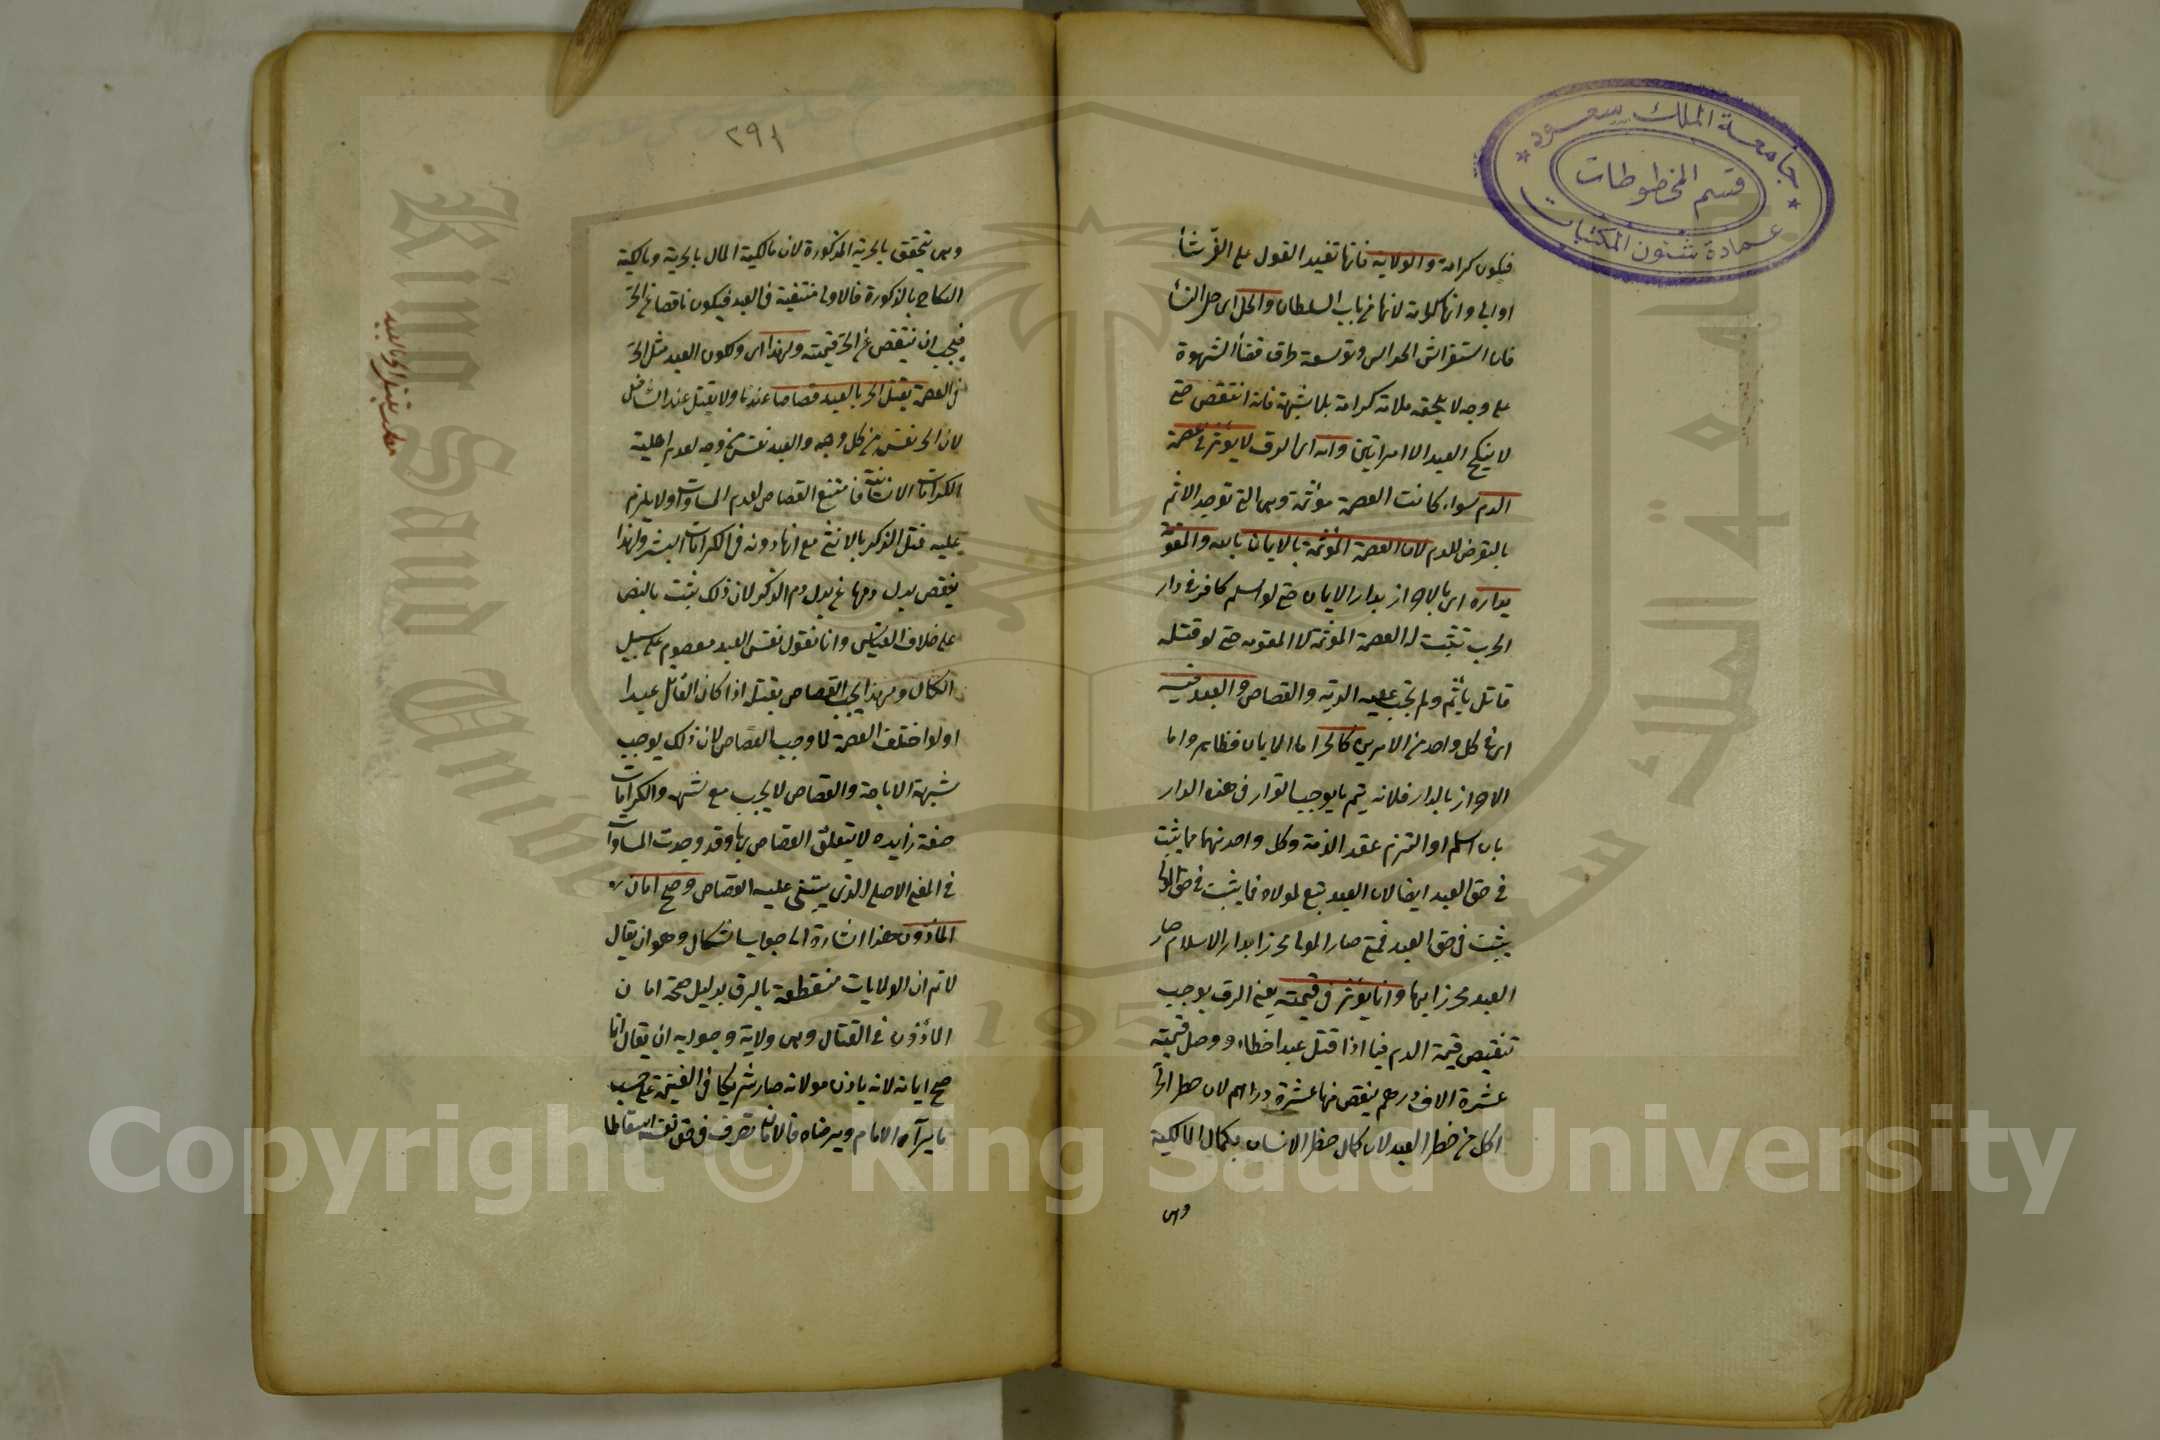 فيكون كرامة والولاية فانها تفيد القول على الغير شاء
او ابى وانها كرامة لانها من باب السلطان والحل اى حل النساء
فان استفراش الحرائر وتوسعة طرق قضاء الشهوة
على وجه لا يلحقه ملامة كرامة بلا شبهة فانه انتقض حتى
لا ينكح العبد الا امراتين وانه اى الرق لا يؤثر فى عصمة
الدم سواء كانت العصمة مؤثمة وهى التى توجب الاثم
بالتعرض للدم لان العصمة المؤثمة بالايمان بالله والمقومة
بداره اى بالاحراز بدار الايمان حتى لو اسلم كافر فى دار
الحرب تثبت له العصمة المؤثمة لا المقومة حتى لو قتله
قاتل يأثم ولم تجب عليه الدية والقصاص والعبد فيه
اى فى كل واحد من الامرين كالحر اما الايمان فظاهر واما
الاحراز بالدار فلانه يتم بما يوجب القرار فى هذه الدار
بان اسلم او التزم عقد الذمة وكل واحد منهما مما يثبت
فى حق العبد ايضا لان العبد تبع لمولاه فما يثبت فى حق المولى
يثبت فى حق العبد فمتى صار المولى محرزا بدار الاسلام صار
العبد محرزا بها وانما يؤثر فى قيمته يعنى الرق يوجب
تنقيص قيمة الدم فيما اذا قتل عبدا خطاء ووصل قيمته
عشرة الاف درهم ينقص منها عشرة دراهم لان خطر الحر
اكمل من خطر العبد لان كمال خطر الانسان بكمال المالكية
وهى
٢٩١
وهى يتحقق بالحرية المذكورة لان مالكية المال بالحرية ومالكية
النكاح بالذكورة فالاولى منتفية فى العبد فيكون ناقصا عن الحر
فيجب ان ينتقص عن الحر قيمته ولهذا اى ولكون العبد مثل الحر
فى العصمة يقتل الحر بالعبد قصاصا عندنا ولا يقتل عند الشافعى
لان الحر نفس من كل وجه والعبد نفس من وجه لعدم اهلية
الكرامات الانسانية فامتنع القصاص لعدم المساواة ولا يلزم
عليه قتل الذكر بالانثى مع انها دونه فى الكرامات البشر ولهذا
ينقص بدل دمها عن بدل دم الذكر لان ذلك ثبت بالنص
على خلاف القياس وانا نقول نفس العبد معصوم على سبيل
الكمال ولهذا يجب القصاص بقتله اذا كان القاتل عبدا
اولو اختلف العصمة لما وجب القصاص لان ذلك يوجب
شبهة الاباحة والقصاص لا يجب مع شبهه والكرامات
صفة زايده لا يتعلق القصاص بها وقد وجدت المساواة
فى المعنى الاصلى الذى يبتنى عليه القصاص وصح امان
الماذون هذا اشارة الى جواب اشكال وهو ان يقال
لانم ان الولايات منقطعة بالرق بدليل صحة امان
الماذون فى القتال وهى ولاية وجوابه ان يقال انما
صح امانه لانه باذن مولانه صار شريكا فى الغنيمة على حسب
ما يرآه الامام ويرضاه فالامان تصرف فى حق نفسه اسقاطا
مطلب يقتل الحر بالعبد
جامعة الملك سعود
قسم المخطوطات
عمادة شئون المكتبات
King Saud University
جامعة الملك سعود
195
Copyright © King Saud University